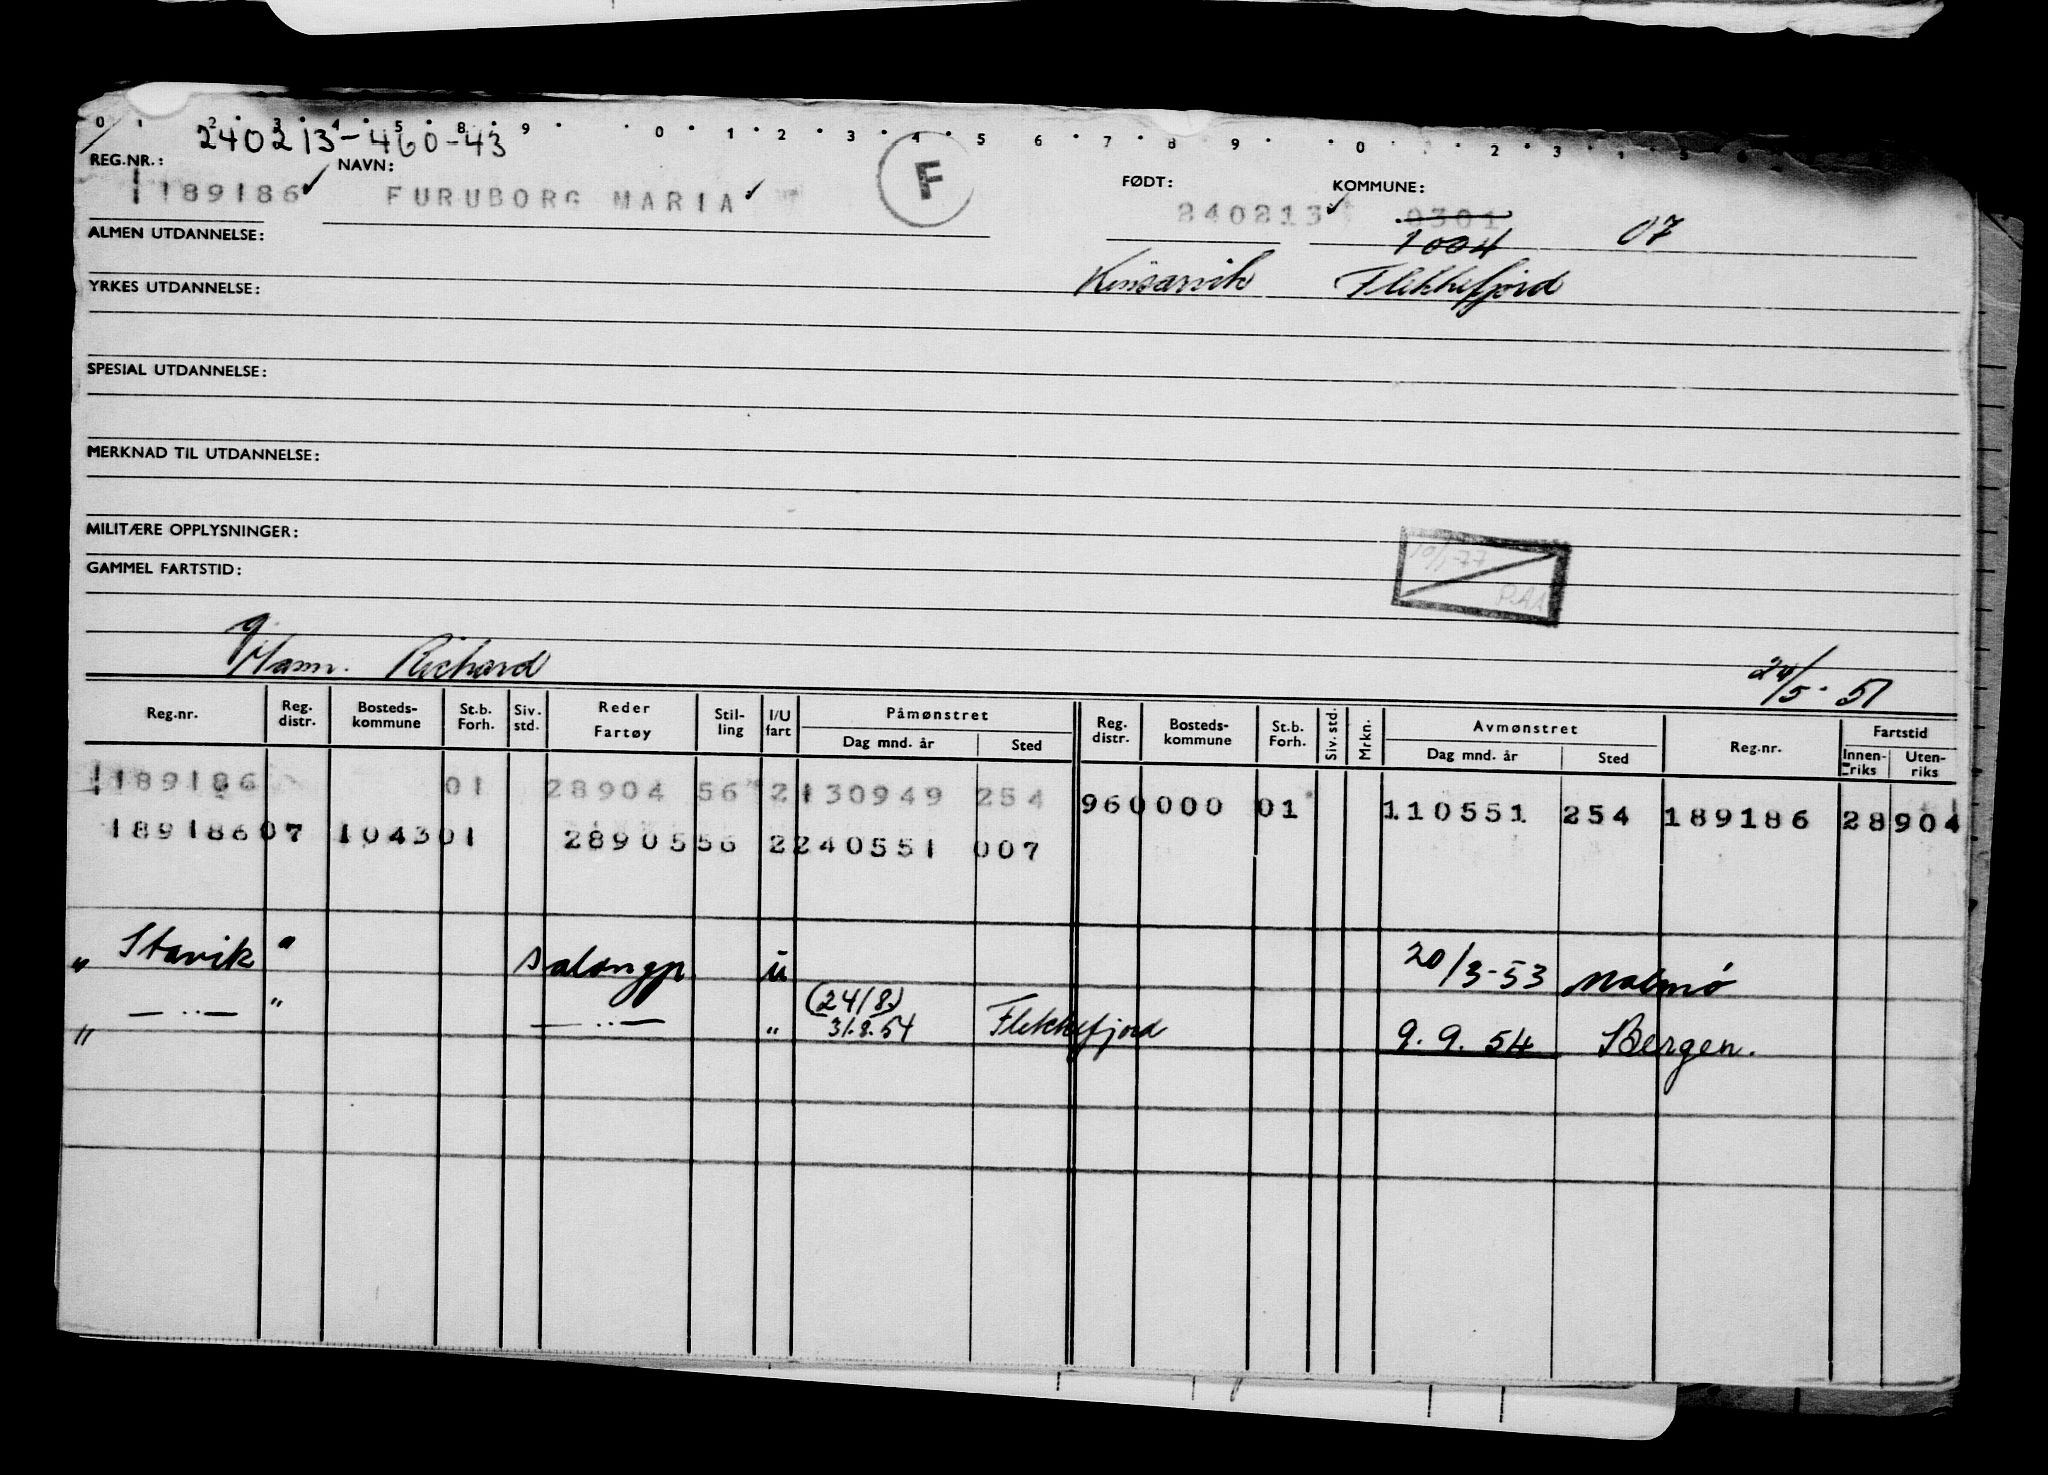 0 1 2 3 4 5 8 9 0 1 2 3 4 5 6 7 8 9 0 2 3 4 5
240213-460-43
REG.NR.: NAVN: FØDT: KOMMUNE:
1189186 ✓ FURUBORG MARIA ✓ F 240213 ✓ 0301 07
1004
ALMEN UTDANNELSE:
Kinsarvik Flekkefjord
YRKES UTDANNELSE:
SPESIAL UTDANNELSE:
MERKNAD TIL UTDANNELSE:
MILITÆRE OPPLYSNINGER:
19/1-77
GAMMEL FARTSTID:
g. Mann. Richard 24/5-51
Reg.nr. Reg. distr. Bosteds-kommune St.b. Forh. Siv. std. Reder Fartøy Stil-ling I/U fart Påmønstret Dag mnd. år Sted Reg. distr. Bosteds-kommune St.b. Forh. Siv. std. Mrkn. Avmønstret Dag mnd. år Sted Reg.nr. Fartstid Innen-riks Uten-riks
1189186 01 28904 56 2 130949 254 96 0000 01 110551 254 189186 28904
189186 07 1043 01 28905 56 2 240551 007
" Stavik " salongp. u 20/3-53 Malmø
" — " — " — " — " (24/8) 31.8.54 Flekkefjord 9.9.54 Bergen.